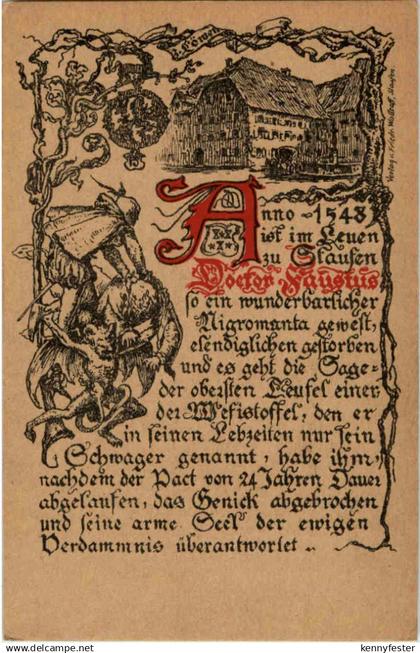 z. Löwen
Anno 1548
ist im Leuen
zu Staufen
Doctor Faustus
so ein wunderbarlicher
Nigromanta gewest,
elendiglichen gestorben
und es geht die Sage
der obersten Teufel einer,
der Mefistoffel, den er
in seinen Lebzeiten nur sein
Schwager genannt, habe ihm,
nachdem der Pact von 24 Jahren Dauer
abgelaufen, das Genick abgebrochen
und seine arme Seel' der ewigen
Verdammnis überantwortet.
delcampe.net
kennyfester